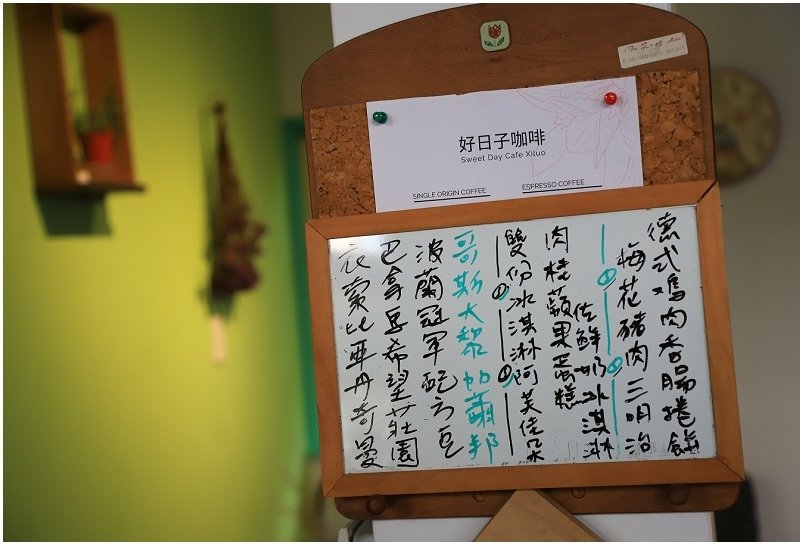 好日子咖啡
Sweet Day Cafe Xiluo
SINGLE ORIGIN COFFEE
ESPRESSO COFFEE
德式鸡肉香腸捲餅
梅花豬肉三明治
肉桂蘋果蛋糕
佐鮮奶冰淇淋
雙份冰淇淋阿芙佳朵
哥斯大黎加蕭邦
波蘭冠軍配方豆
巴拿馬希望莊園
衣索比亞丹奇曼